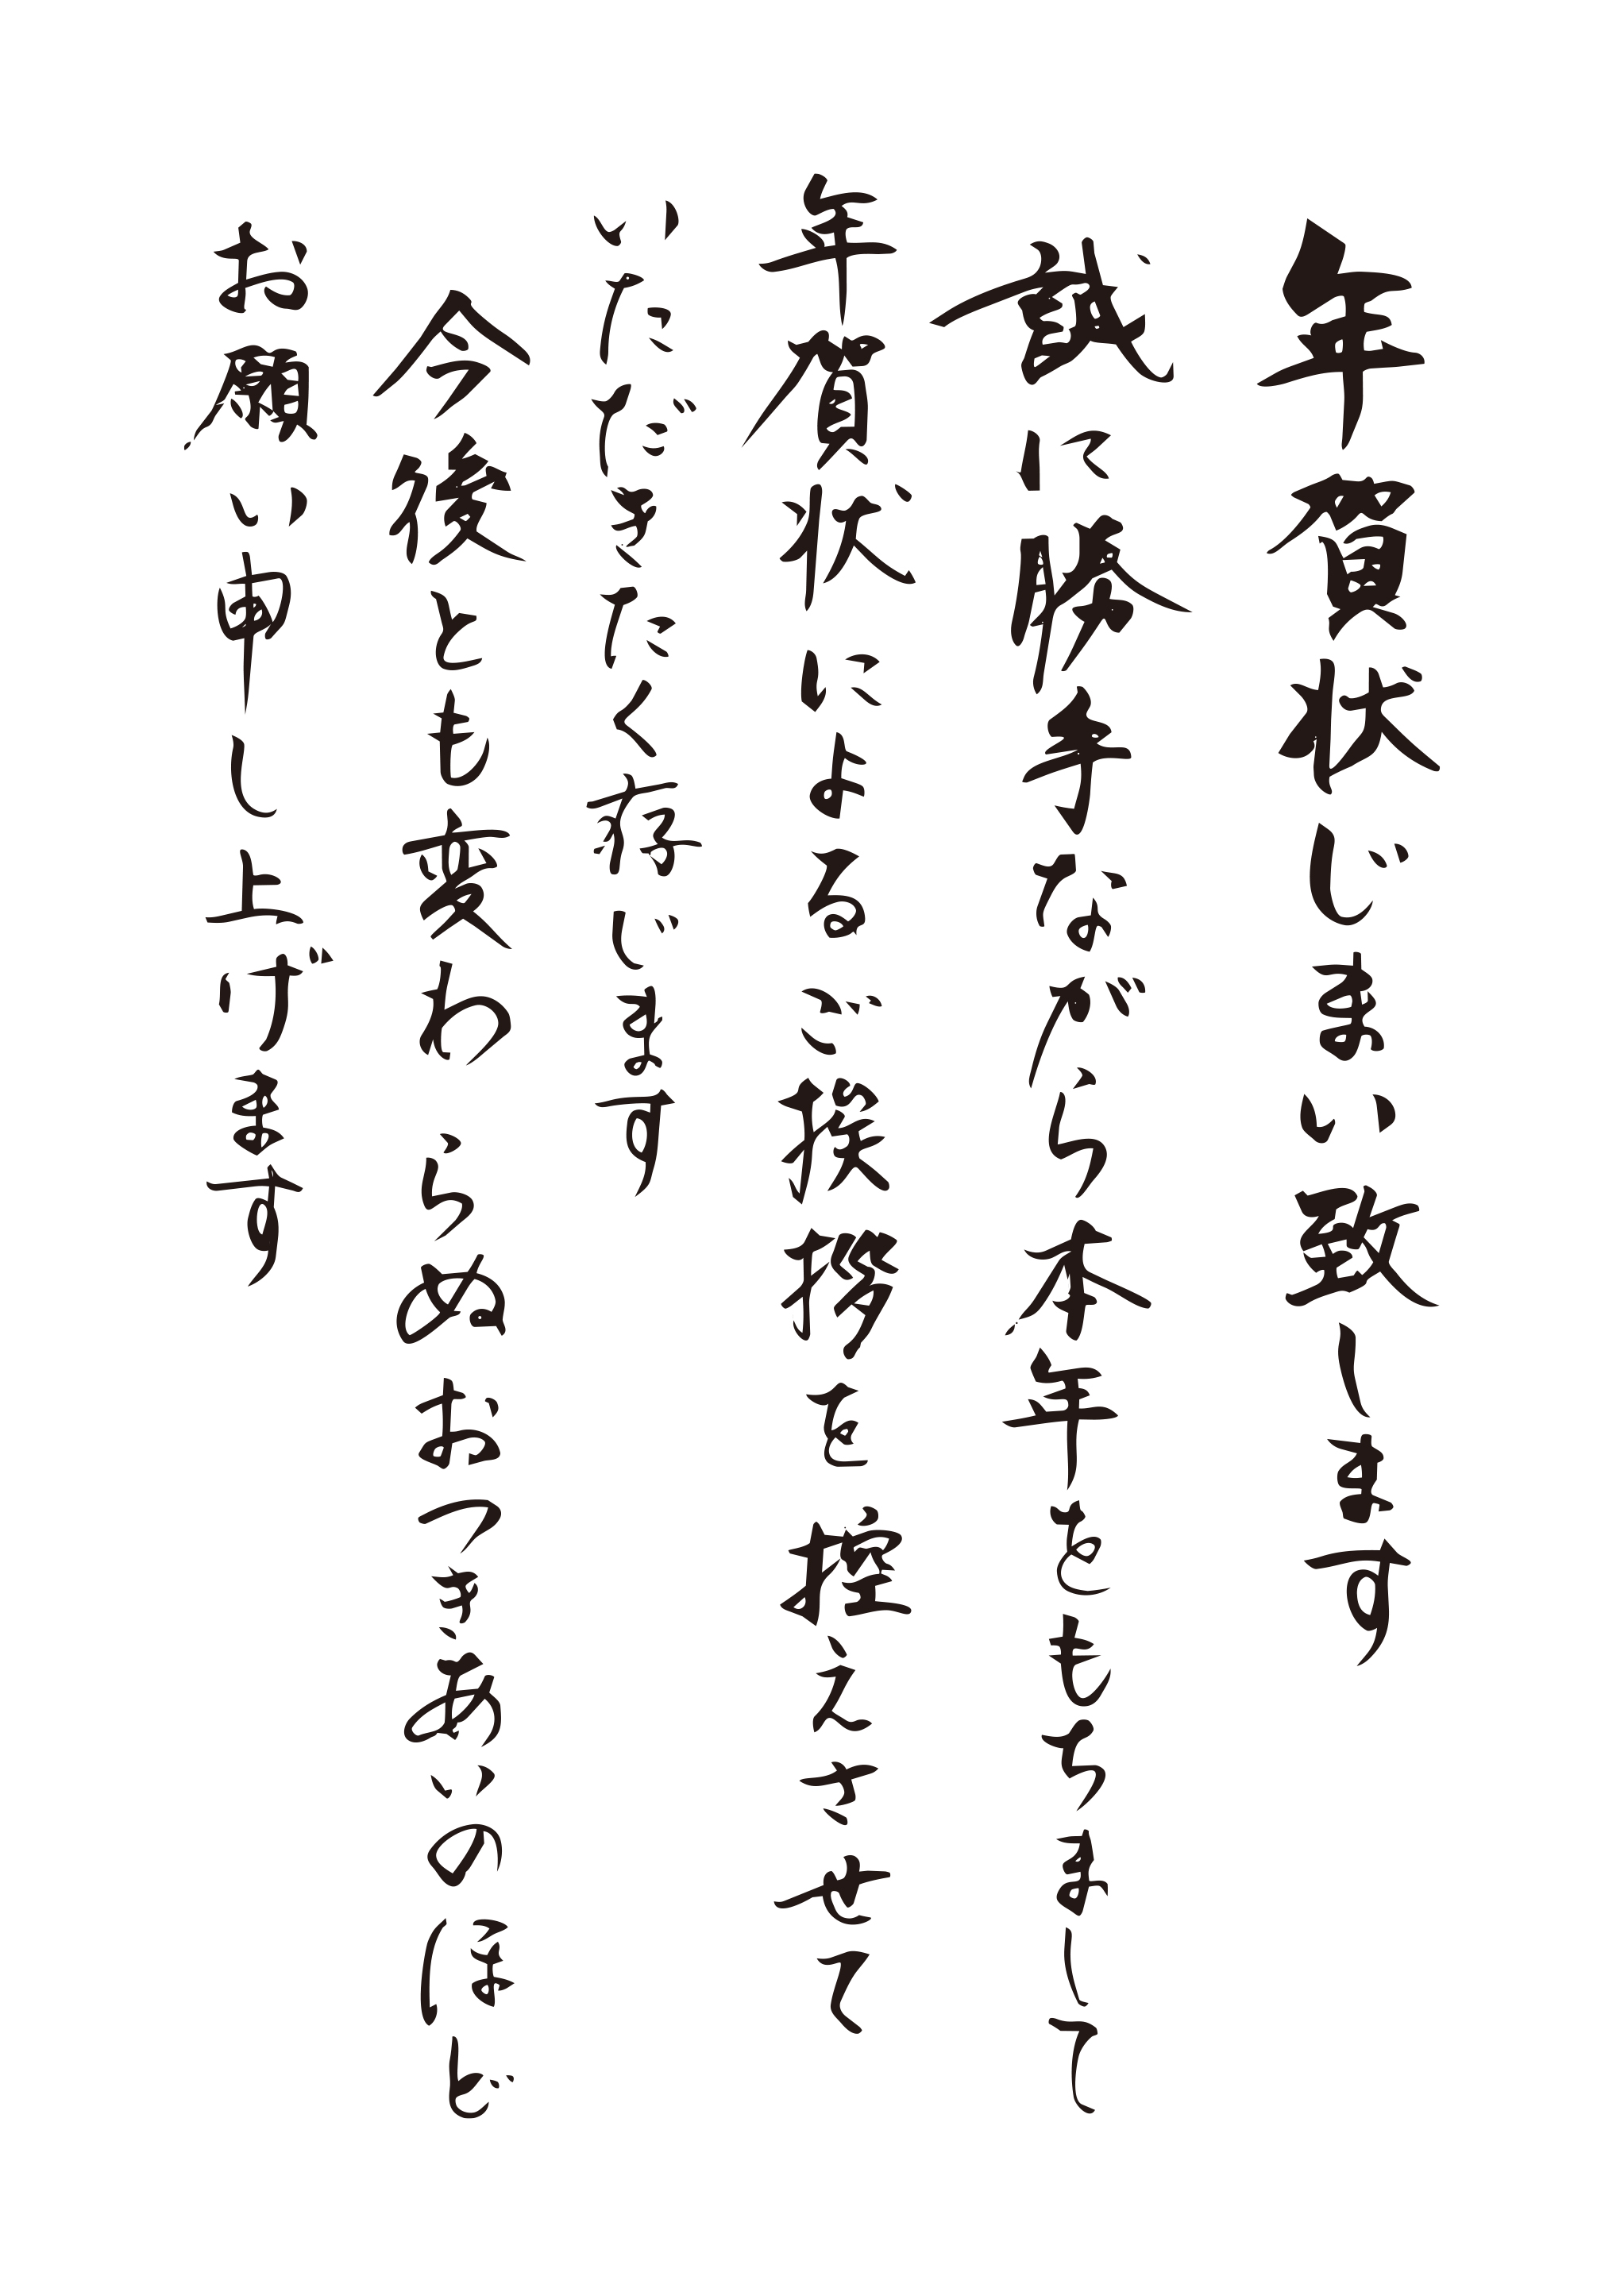 年賀状じまい致します
誠に勝手ながら本年をもちまして
年賀状によるご挨拶を控えさせて
いただきたく存じます
今後とも変わらぬおつきあいのほど
お願い申し上げます